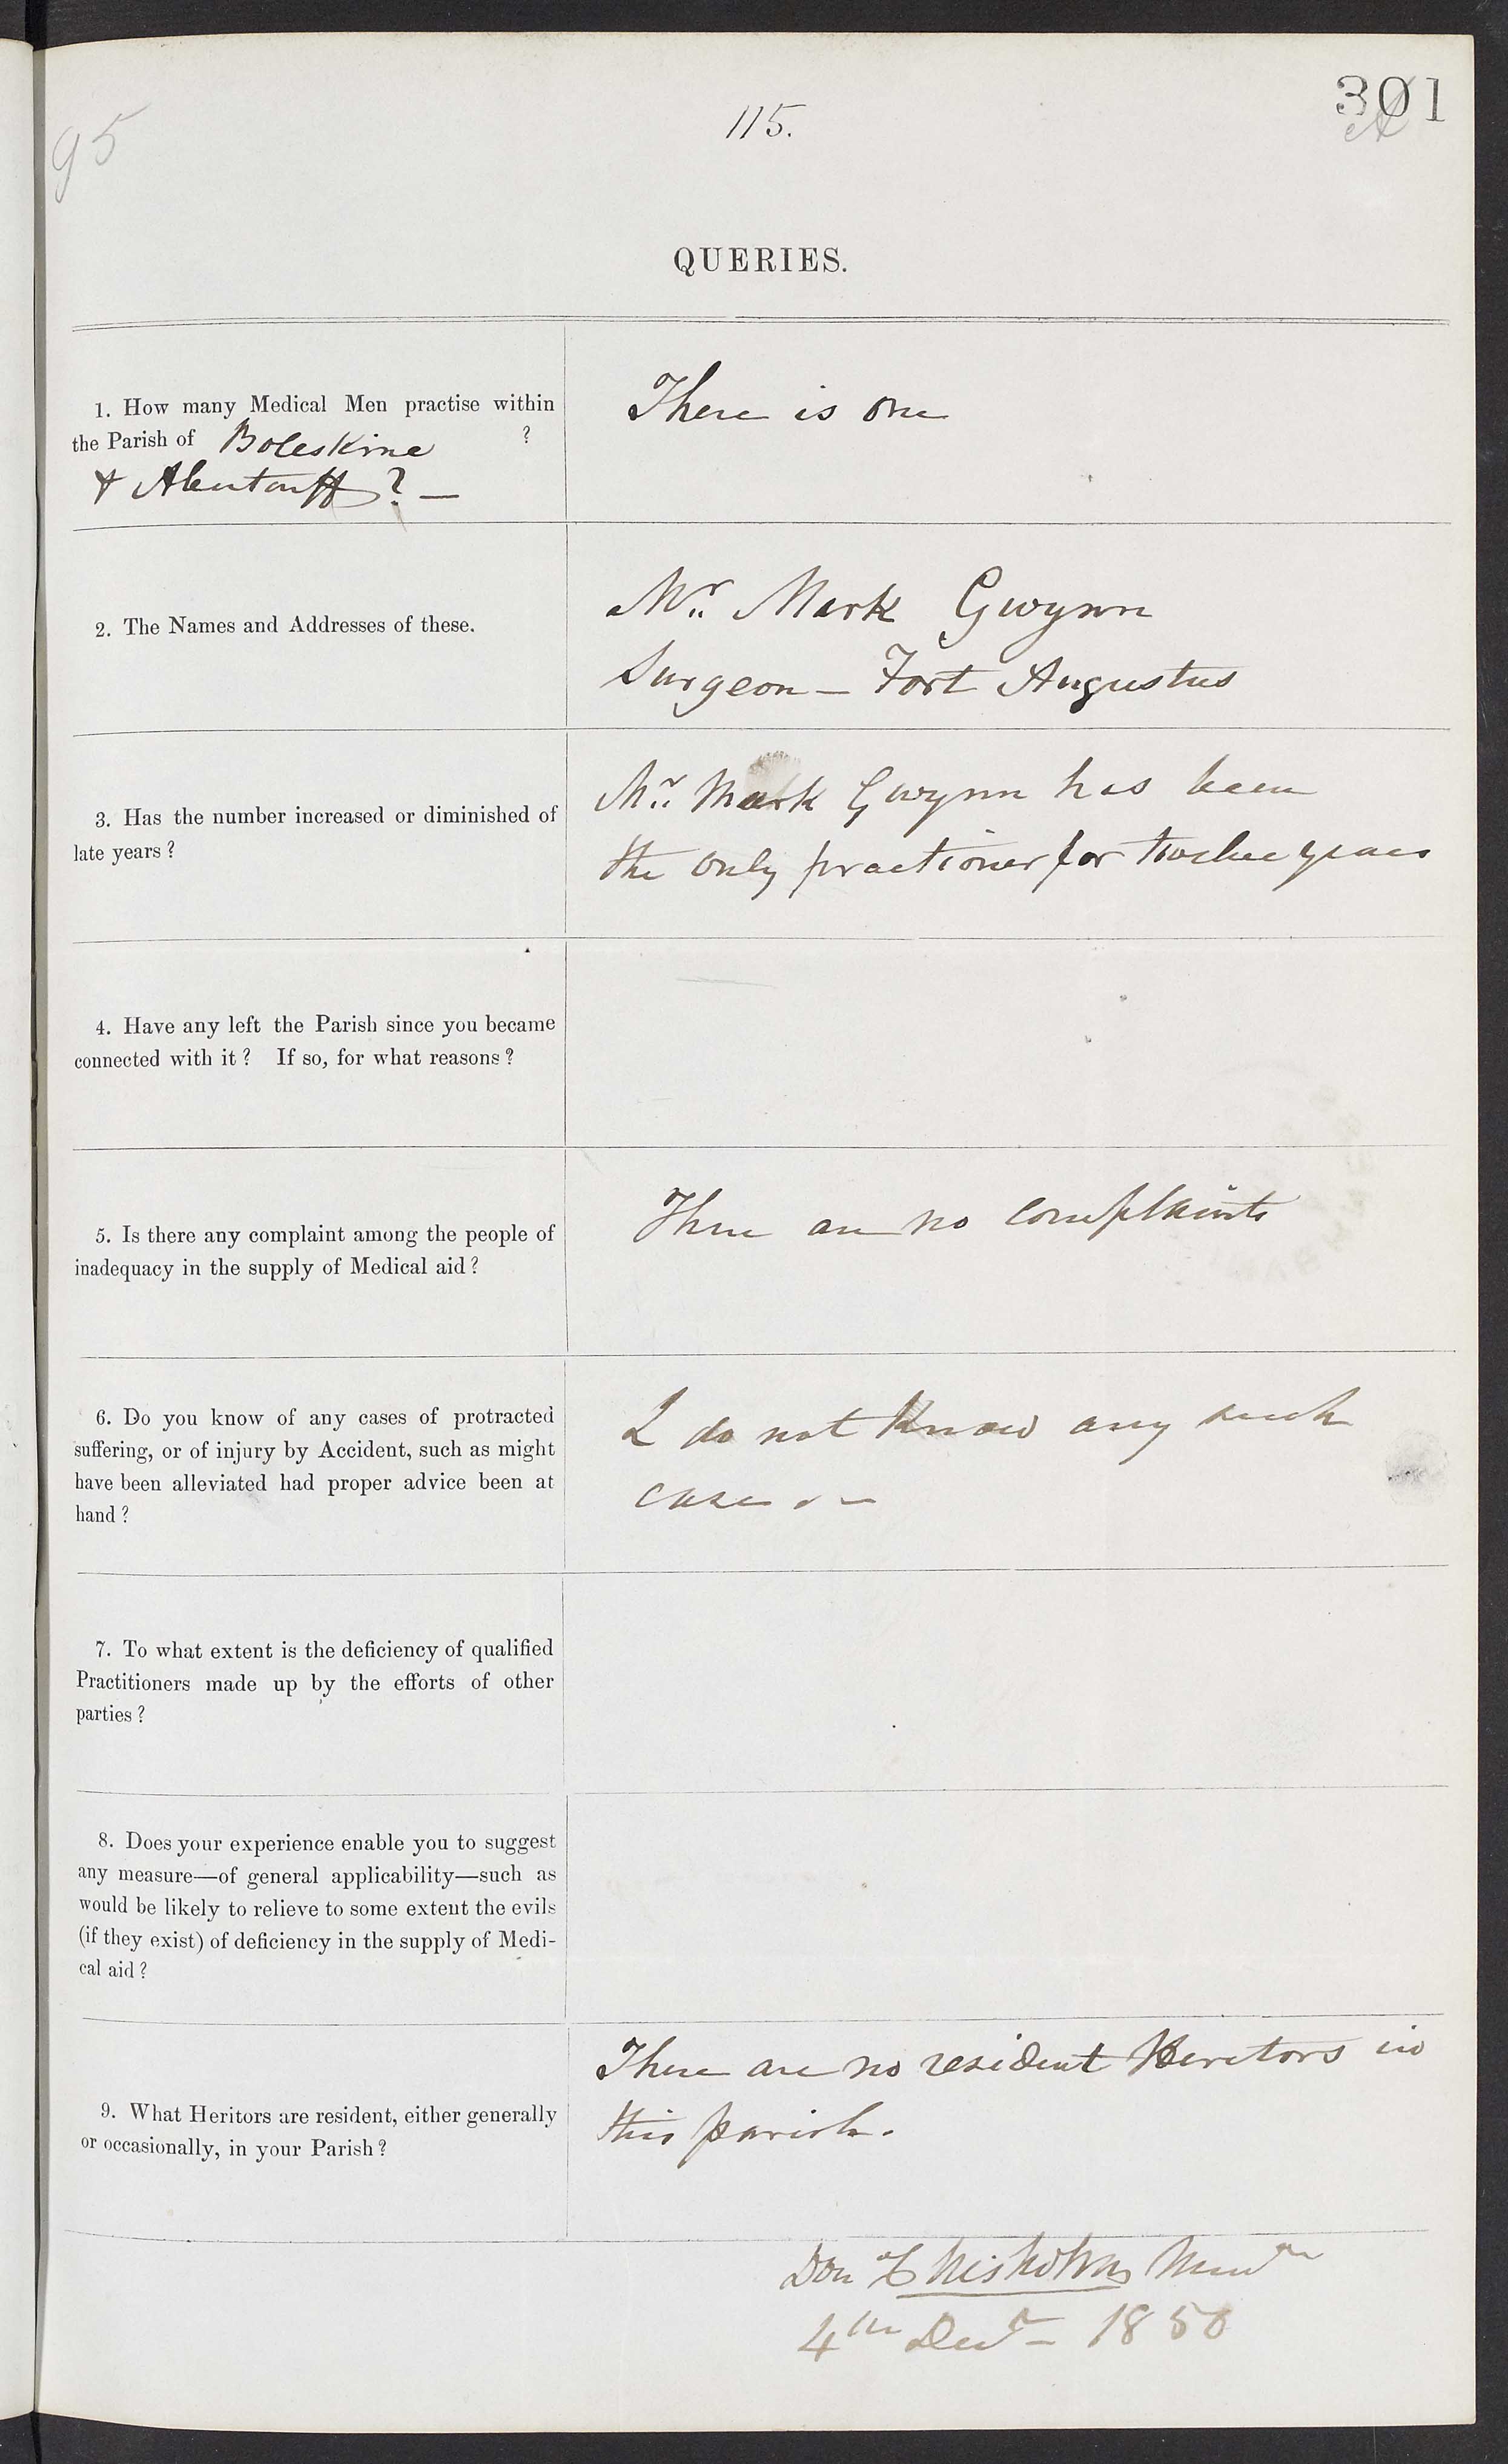 95
115.
301
QUERIES.
1. How many Medical Men practise within
the Parish of Boleskine ?
& Abertarff ? —
There is one
2. The Names and Addresses of these.
Mr. Mark Gwynn
Surgeon — Fort Augustus
3. Has the number increased or diminished of
late years ?
Mr. Mark Gwynn has been
the only practioner for twelve years
4. Have any left the Parish since you became
connected with it ? If so, for what reasons ?
5. Is there any complaint among the people of
inadequacy in the supply of Medical aid ?
There are no complaints
6. Do you know of any cases of protracted
suffering, or of injury by Accident, such as might
have been alleviated had proper advice been at
hand ?
I do not know any such
cases —
7. To what extent is the deficiency of qualified
Practitioners made up by the efforts of other
parties ?
8. Does your experience enable you to suggest
any measure—of general applicability—such as
would be likely to relieve to some extent the evils
(if they exist) of deficiency in the supply of Medi-
cal aid ?
9. What Heritors are resident, either generally
or occasionally, in your Parish ?
There are no resident Heretors in
this parish.
Don Chisholm Minr
4th Decr — 1850